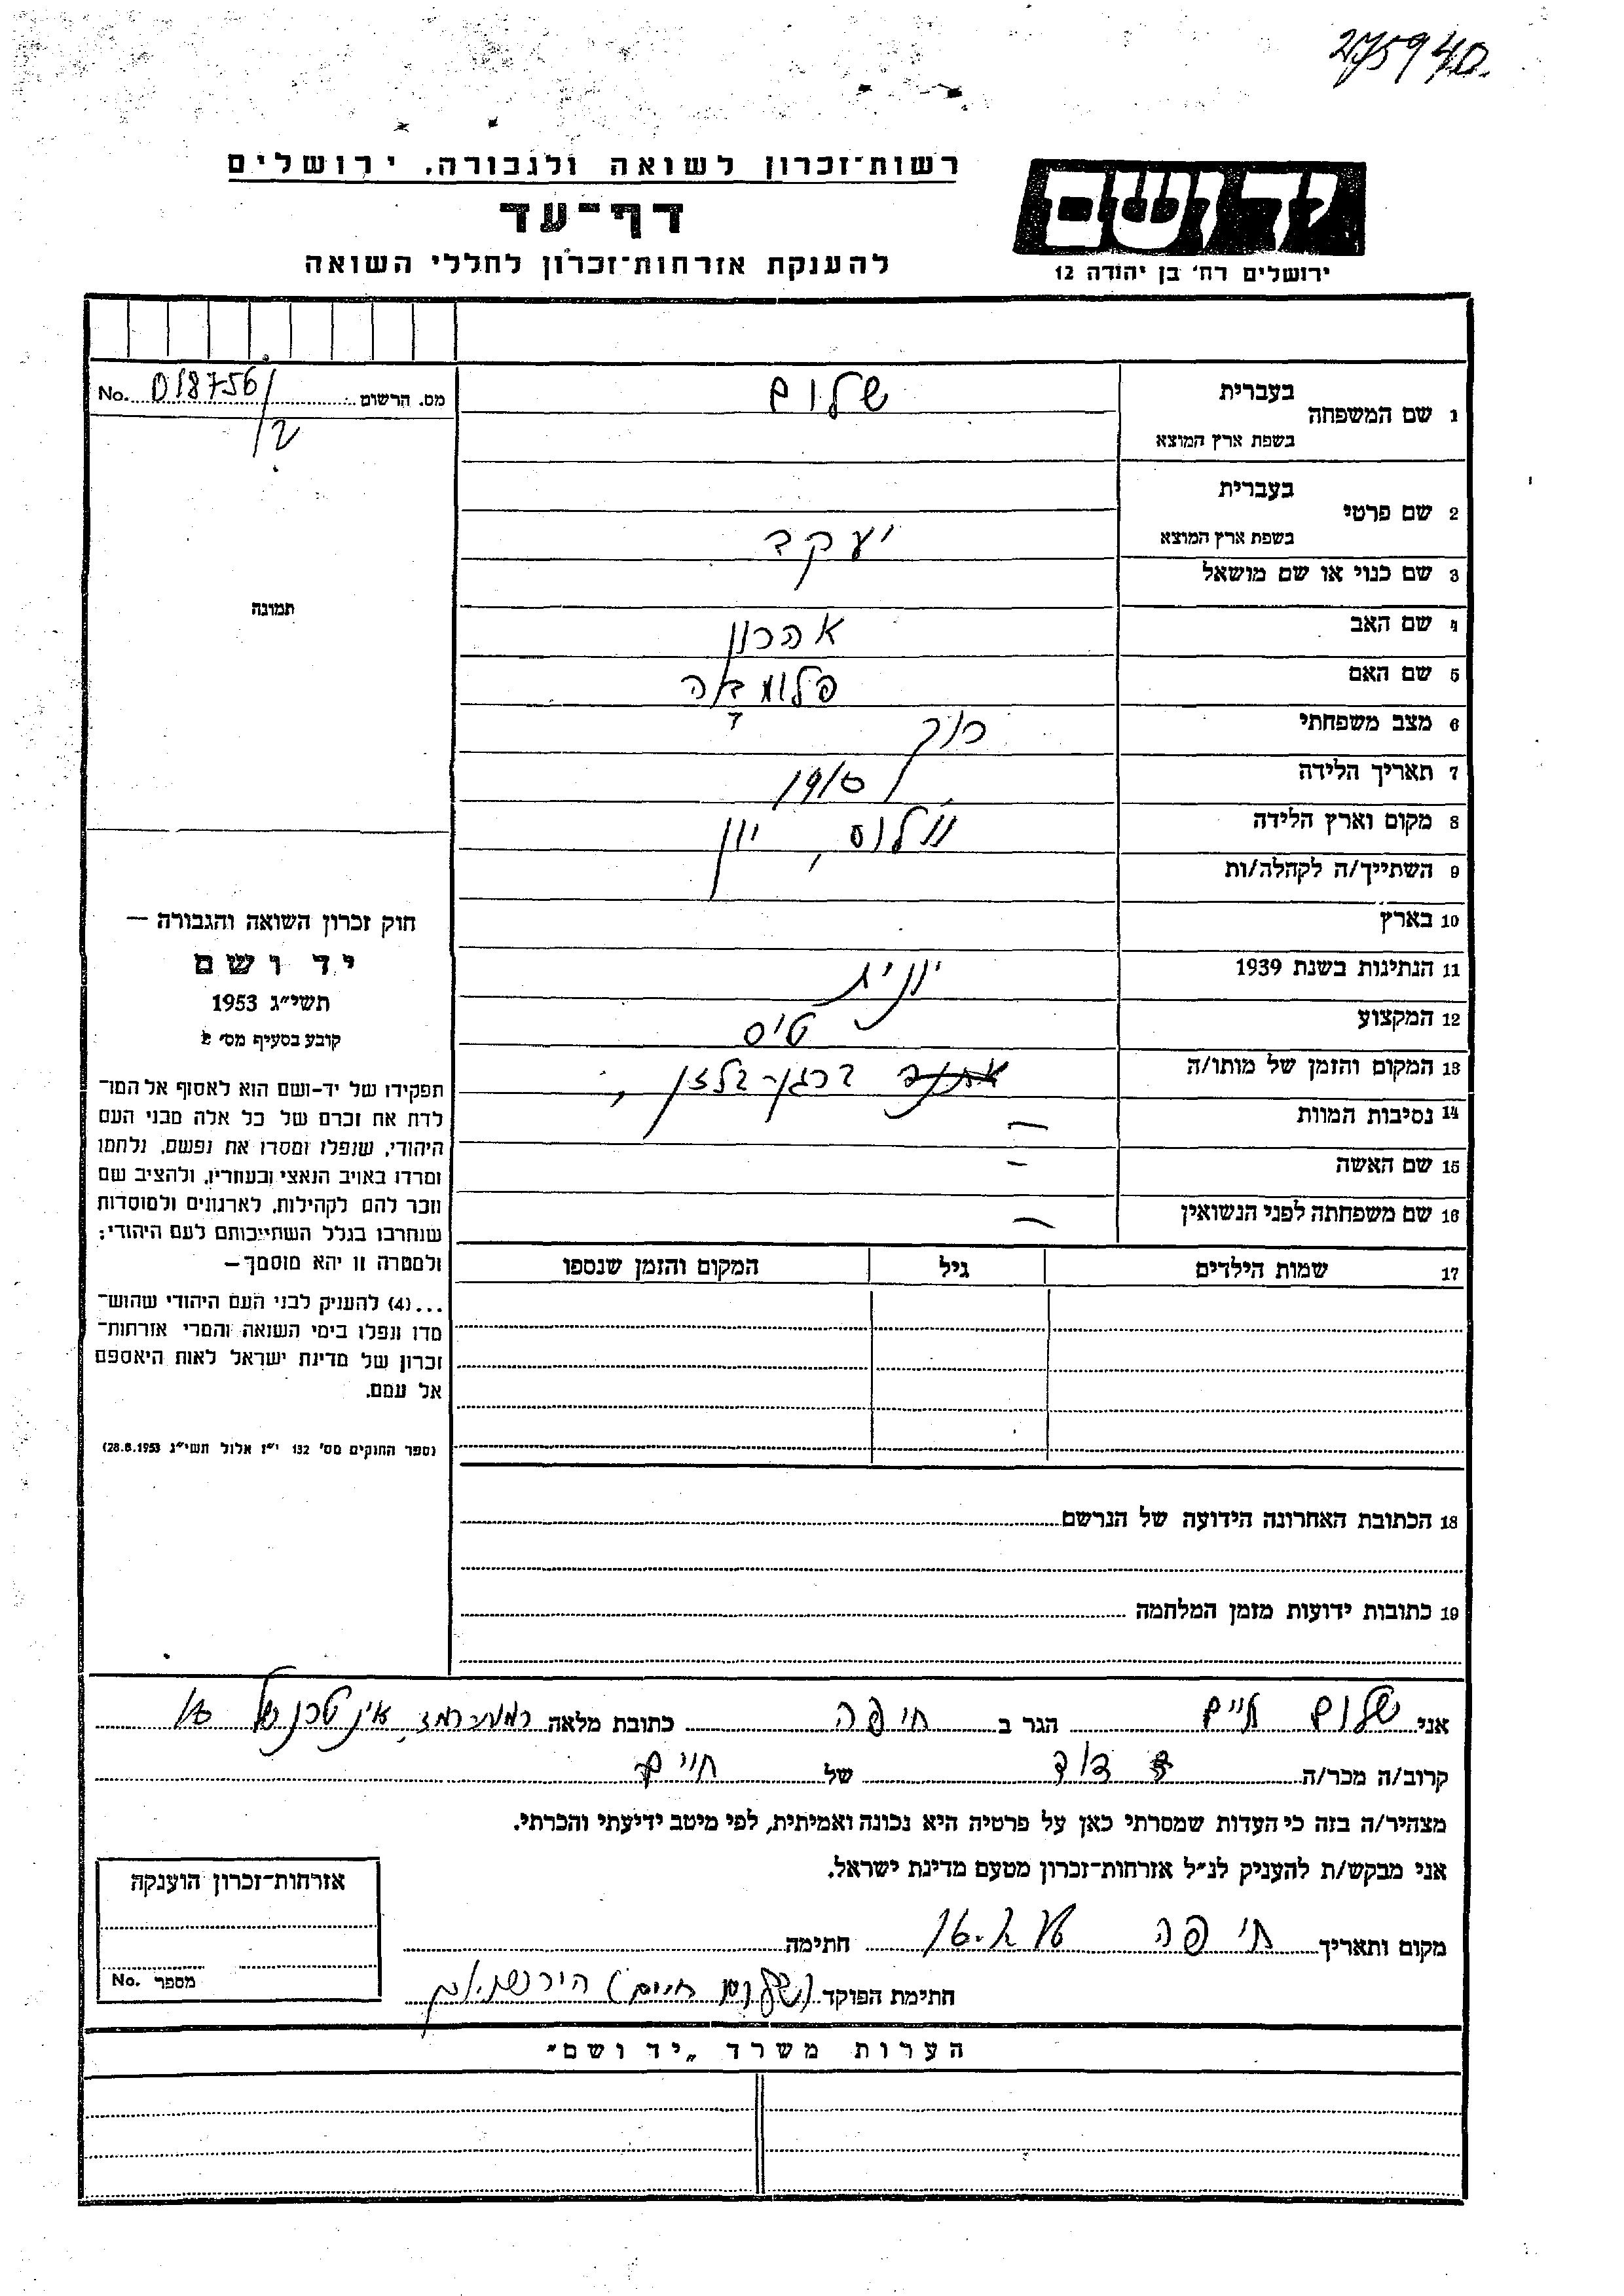 275940.
רשות־זכרון לשואה ולגבורה, ירושלים
יד ושם
דף־עד
ירושלים רח' בן יהודה 12
להענקת אזרחות־זכרון לחללי השואה
מס. הרשום No. 018756/
/2
1 שם המשפחה בעברית שלום
בשפת ארץ המוצא
2 שם פרטי בעברית
בשפת ארץ המוצא יעקב
3 שם כנוי או שם מושאל
תמונה
4 שם האב אהרון
5 שם האם
6 מצב משפחתי רוק
7 תאריך הלידה
8 מקום וארץ הלידה וולוס, יוון
9 השתייך/ה לקהלה/ות
10 בארץ
11 הנתינות בשנת 1939 יוונית
12 המקצוע
13 המקום והזמן של מותו/ה ברגן-בלזן,
14 נסיבות המוות —
15 שם האשה —
16 שם משפחתה לפני הנשואין —
17 שמות הילדים גיל המקום והזמן שנספו
18 הכתובת האחרונה הידועה של הנרשם
19 כתובות ידועות מזמן המלחמה
חוק זכרון השואה והגבורה —
יד ושם
תשי״ג 1953
קובע בסעיף מס׳ 2
תפקידו של יד-ושם הוא לאסוף אל המו־
לדת את זכרם של כל אלה מבני העם
היהודי, שנפלו ומסרו את נפשם, נלחמו
ומרדו באויב הנאצי ובעוזריו, ולהציב שם
וזכר להם לקהילות, לארגונים ולמוסדות
שנחרבו בגלל השתייכותם לעם היהודי;
ולמטרה זו יהא מוסמך—
...(4) להעניק לבני העם היהודי שהוש־
מדו ונפלו בימי השואה והמרי אזרחות־
זכרון של מדינת ישראל לאות היאספם
אל עמם.
(ספר החוקים מס' 132 י״ז אלול תשי״ג 28.8.1953)
אני שלום חיים הגר ב חיפה כתובת מלאה
קרוב/ה מכר/ה דוד של חיים
מצהיר/ה בזה כי העדות שמסרתי כאן על פרטיה היא נכונה ואמיתית, לפי מיטב ידיעתי והכרתי.
אני מבקש/ת להעניק לנ״ל אזרחות־זכרון מטעם מדינת ישראל.
אזרחות־זכרון הוענקה
מספר No.
מקום ותאריך חיפה חתימה
חתימת הפוקד (שלום חיים)
הערות משרד „יד ושם״